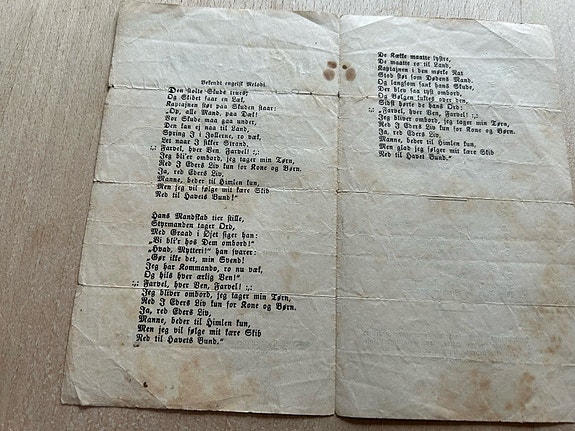 Bekendt engelsk Melodi.
Den stolte Skude revet;
Og Skibet faar en Læk,
Kaptajnen støt paa Skuden staar:
„Op, alle Mand, paa Dæk!
Vor Skude maa gaa under,
Den kan ej naa til Land,
Spring I i Jollerne, ro væk,
Let naar I sikker Strand.
:,: Farvel, hver Ven, Farvel! :,:
Jeg bli'er ombord, jeg tager min Tørn,
Red I Eders Liv kun for Kone og Børn.
Ja, red Eders Liv,
Manne, beder til Himlen kun,
Men jeg vil følge mit kære Skib
Ned til Havets Bund!"
Hans Mandskab tier stille,
Styrmanden tager Ord,
Med Graad i Øjet siger han:
„Vi bli'r hos Dem ombord!"
„Hvad, Mytteri!" han svarer:
„Gør ikke det, min Svend!
Jeg har Kommando, ro nu væk,
Og hils hver ærlig Ven!"
:,: Farvel, hver Ven, Farvel! :,:
Jeg bliver ombord, jeg tager min Tørn,
Red I Eders Liv kun for Kone og Børn.
Ja, red Eders Liv,
Manne, beder til Himlen kun,
Men jeg vil følge mit kære Skib
Ned til Havets Bund."
De Kække maatte lystre,
De maatte ro til Land,
Kaptajnen i den mørke Nat
Stod støt som Dødens Mand.
Og langsom sank hans Skude,
Der blev saa tyst ombord,
Og Bølgen lukkes over den,
Sidst hørte de hans Ord:
:,: „Farvel, hver Ven, Farvel! :,:
Jeg bliver ombord, jeg tager min Tørn,
Red I Eders Liv kun for Kone og Børn.
Ja, red Eders Liv,
Manne, beder til Himlen kun,
Men glad jeg følger mit kære Skib
Ned til Havet Bund."